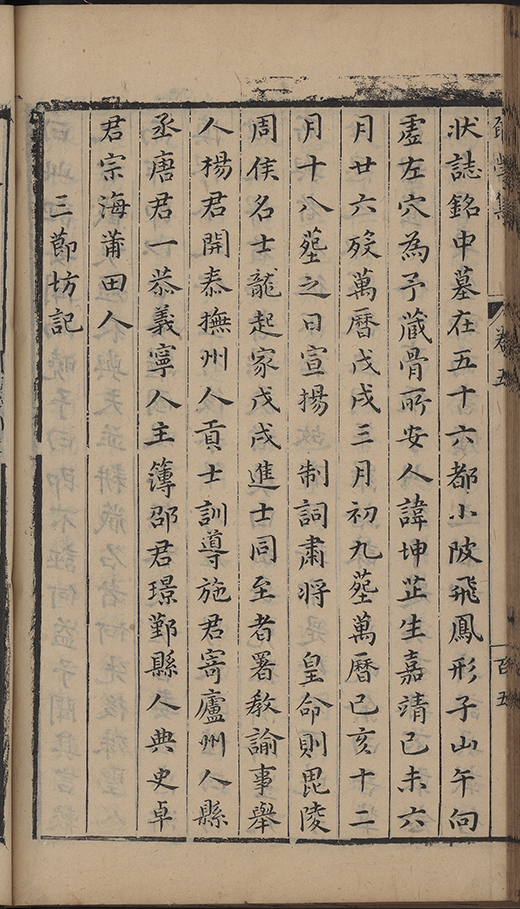 狀誌銘中墓在五十六都小陂飛鳳形子山午向
虛左穴為予藏骨所安人諱坤芷生嘉靖己未六
月廿六歿萬曆戊戌三月初九塟萬曆己亥十二
月十八塟之日宣揚　制詞肅將　皇命則毘陵
周侯名士龍起家戊戌進士同至者署教諭事舉
人楊君開泰撫州人貢士訓導施君寄廬州人縣
丞唐君一恭義寧人主簿邵君璟鄞縣人典史卓
君宗海莆田人
三節坊記
卷五
百五